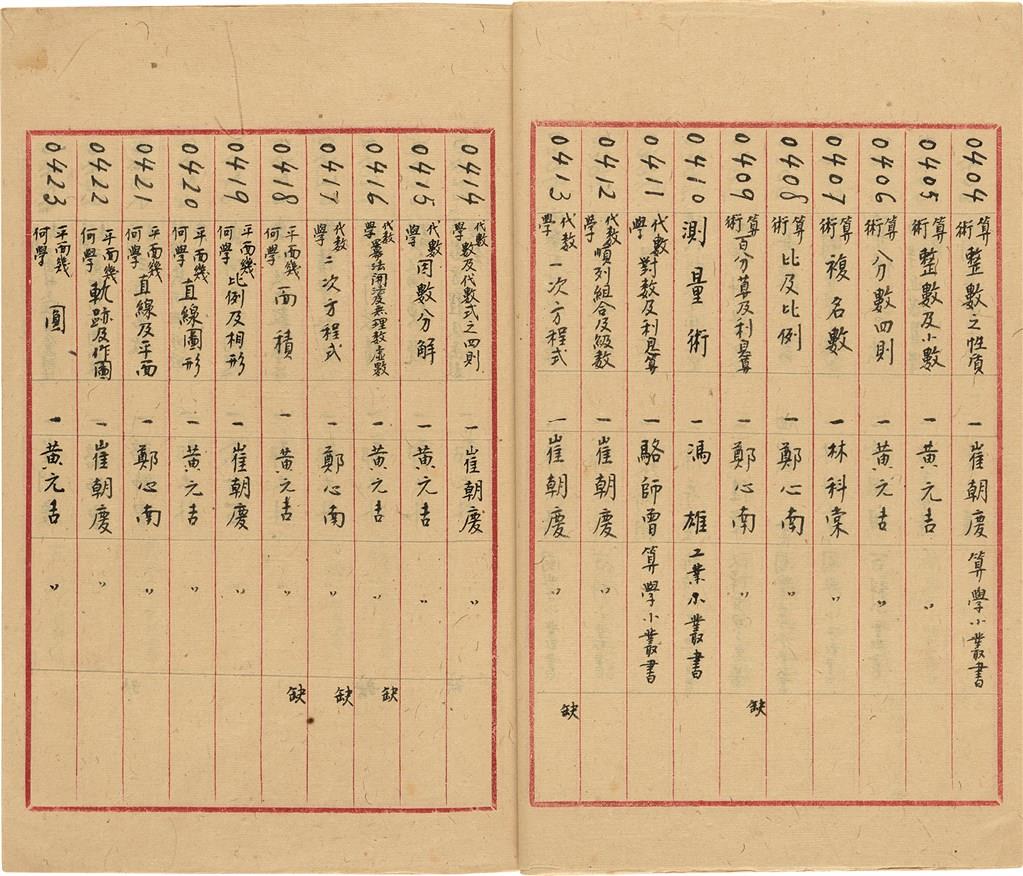 0404 算術 整數之性质 一 崔朝慶 算學小叢書
0405 算術 整數及小數 一 黃元吉 〃
0406 算術 分數四則 一 黃元吉 〃
0407 算術 複名數 一 林科棠 〃
0408 算術 比及比例 一 鄭心南 〃
0409 算術 百分算及利息算 一 鄭心南 〃 缺
0410 測量術 一 馮雄 工業小叢書
0411 代數學 對數及利息算 一 駱師曾 算學小叢書
0412 代數學 順列組合及級数 一 崔朝慶 〃
0413 代数學 一次方程式 一 崔朝慶 〃 缺
0414 代數學 數及代數式之四則 一 崔朝慶 〃
0415 代數學 因數分解 一 黃元吉 〃
0416 代数學 冪法開法及無理数虛數 一 黃元吉 〃 缺
0417 代数學 二次方程式 一 鄭心南 〃 缺
0418 平面幾何學 面積 一 黃元吉 〃 缺
0419 平面幾何學 比例及相形 一 崔朝慶 〃
0420 平面幾何學 直線圖形 一 黃元吉 〃
0421 平面幾何學 直線及平面 一 鄭心南 〃
0422 平面幾何學 軌跡及作圖 一 崔朝慶 〃
0423 平面幾何學 圓 一 黃元吉 〃